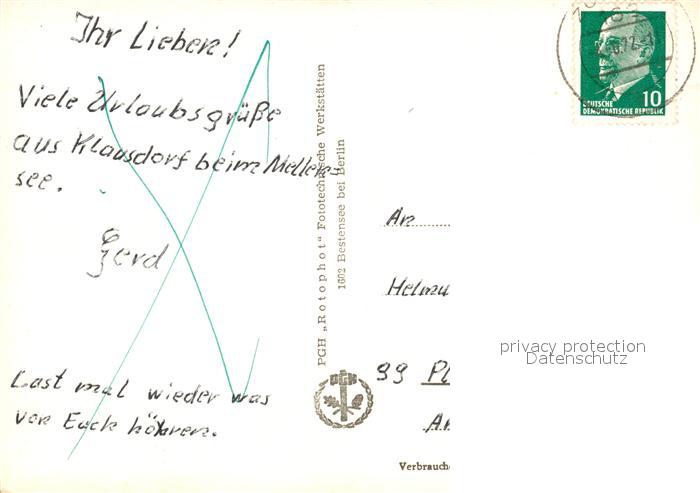 Ihr Lieben!
Viele Urlaubsgrüße
aus Klausdorf beim Mellen=
see.
Gerd
Last mal wieder was
von Euch hören.
PGH „Rotophot“ Fototechnische Werkstätten
1602 Bestensee bei Berlin
PGH
10
DEUTSCHE
DEMOKRATISCHE REPUBLIK
An
Helmu
privacy protection
Datenschutz
99 Pl
Verbrauche